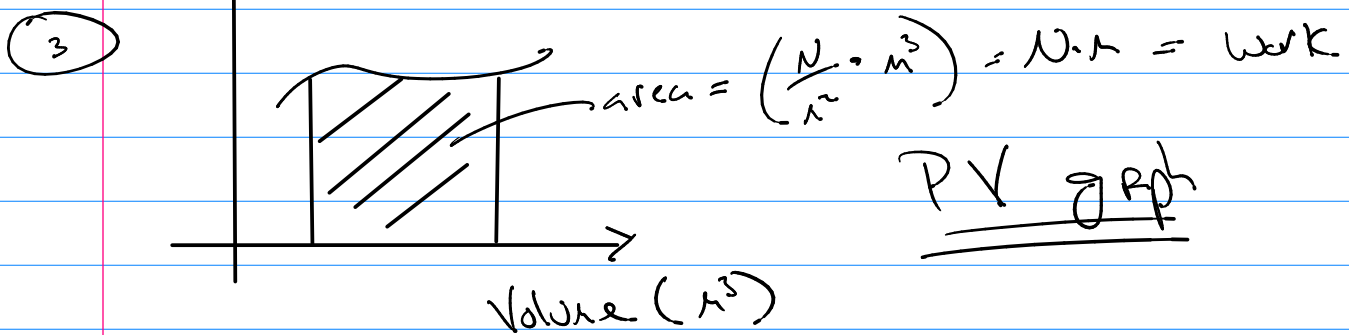 3
area = (N/m² · m³) = N·m = Work
PV graph
Volume (m³)